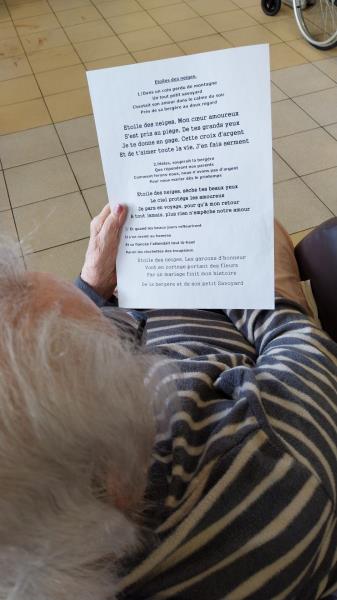 Etoiles des neiges.
1/Dans un coin perdu de montagne
Un tout petit savoyard
Chantait son amour dans le calme du soir
Près de sa bergère au doux regard
Etoile des neiges, Mon cœur amoureux
S'est pris au piège, De tes grands yeux
Je te donne en gage, Cette croix d'argent
Et de t'aimer toute la vie, J'en fais serment
2/Hélas, soupirait la bergère
Que répondront nos parents
Comment ferons nous, nous n'avons pas d'argent
Pour nous marier dès le printemps
Etoile des neiges, sèche tes beaux yeux
Le ciel protège les amoureux
Je pars en voyage, pour qu'à mon retour
A tout jamais, plus rien n'empêche notre amour
3/ Et quand les beaux jours refleurirent
Il s'en revint au hameau
Et sa fiancée l'attendait tout là-haut
Parmi les clochettes des troupeaux
Etoile des neiges, Les garçons d'honneur
Vont en cortège portant des fleurs
Par un mariage finit mon histoire
De la bergère et de son petit Savoyard